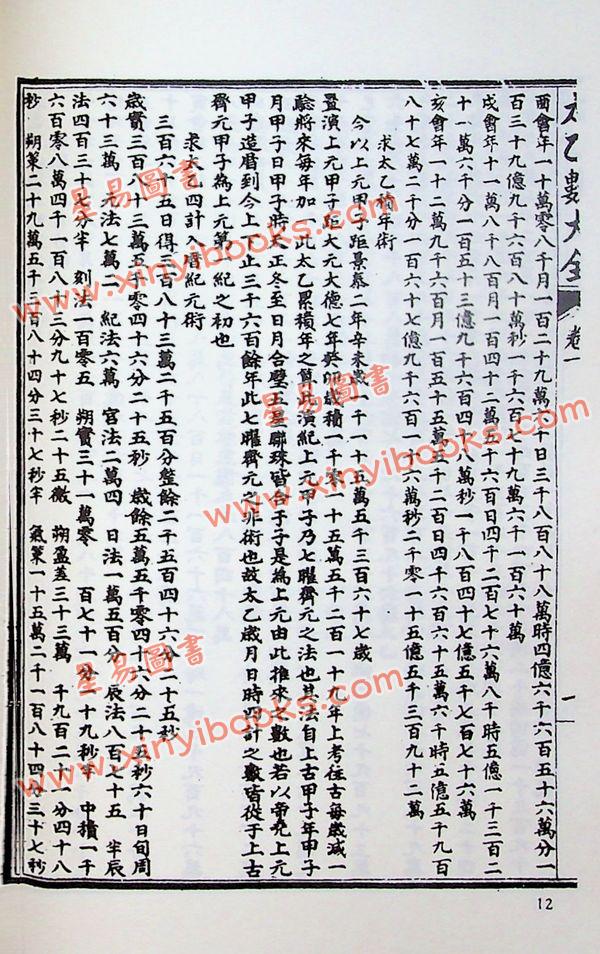 太乙數大全 卷一
一
酉會年一十萬零八千月一百二十九萬六千日三千八百八十八萬時四億六千六百五十六萬分一
百三十九億九千六百八十萬秒一千六百七十九萬六千一百六十萬
戌會年十一萬八千八百月一百四十二萬五千六百日四千二百七十六萬八千時五億一千三百二
十一萬六千分一百五十三億九千六百四十八萬秒一千八百四十七億五千七百七十六萬
亥會年一十二萬九千六百月一百五十五萬五千二百日四千六百六十五萬六千時五億五千九百
八十七萬二千分一百六十七億九千六百一十六萬秒二千零一十五億五千三百九十二萬
求太乙積年術
今以上元甲子距景泰二年辛未歲一千一十五萬五千三百六十七歲
暨演上元甲子距大元大德七年癸卯歲積一千零一十五萬五千二百一十九年上考往古每歲減一
驗將來每年加一此太乙累積年之算此演紀上元甲子乃七曜齊元之法也其法自上古甲子年甲子
月甲子日甲子時天正冬至日月合璧五星聯珠皆合于子是為上元由此推來之數也若以帝堯上元
甲子造曆到今上下止三千六百餘年此七曜齊元之非術也故太乙歲月日時四計之數皆從于上古
齊元甲子為上元第一紀之初也
求太乙四計入曆紀元術
三百六十五日得三百八十三萬二千五百分整餘二千五百四十六分二十五秒
歲實三百八十三萬五千零四十六分二十五秒 歲餘五萬五千零四十六分二十五秒六十日旬周
六十三萬 元法七萬二 紀法六萬 宮法二萬四 日法一萬五百分 辰法八百七十五 半辰
法四百三十七分半 刻法一百零五 朔實三十一萬零 百七十一分 二十九秒半 中積一千
六百零八萬四千一百八十三分九十七秒二十五微 朔盈差三十三萬 千九百二十 分四十八
秒 朔策二十九萬五千三百八十四分三十七秒半 氣策一十五萬二千一百八十四分三十七秒
12
星易圖書
www.xinyibooks.com
星易圖書
www.xinyibooks.com
星易圖書
www.xinyibooks.com